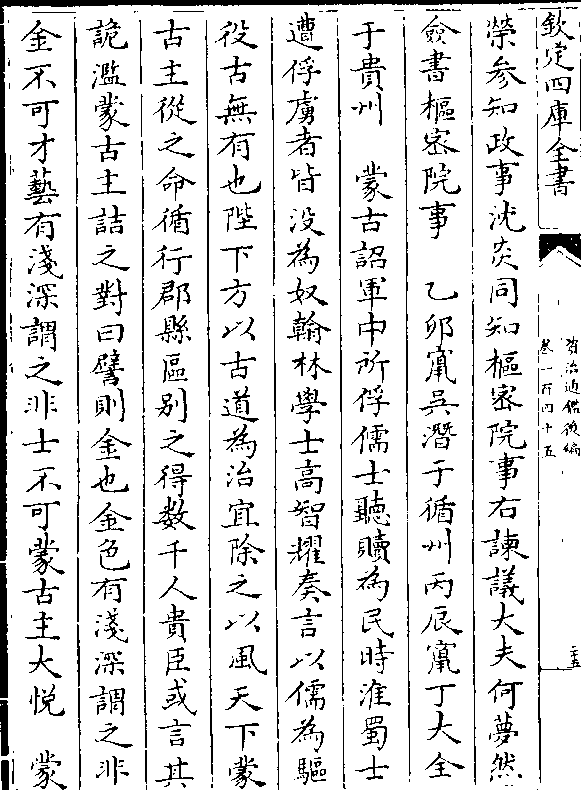 欽定四庫全書
資治通鑑後編
卷一百四十五
二五
榮參知政事沈炎同知樞密院事右諫議大夫何夢然
僉書樞密院事　乙卯竄吳潛于循州丙辰竄丁大全
于貴州　蒙古詔軍中所俘儒士聽贖為民時淮蜀士
遭俘虜者皆没為奴翰林學士高智耀奏言以儒為驅
役古無有也陛下方以古道為治宜除之以風天下蒙
古主從之命循行郡縣區别之得數千人貴臣或言其
詭濫蒙古主詰之對曰譬則金也金色有淺深謂之非
金不可才藝有淺深謂之非士不可蒙古主大悅　蒙